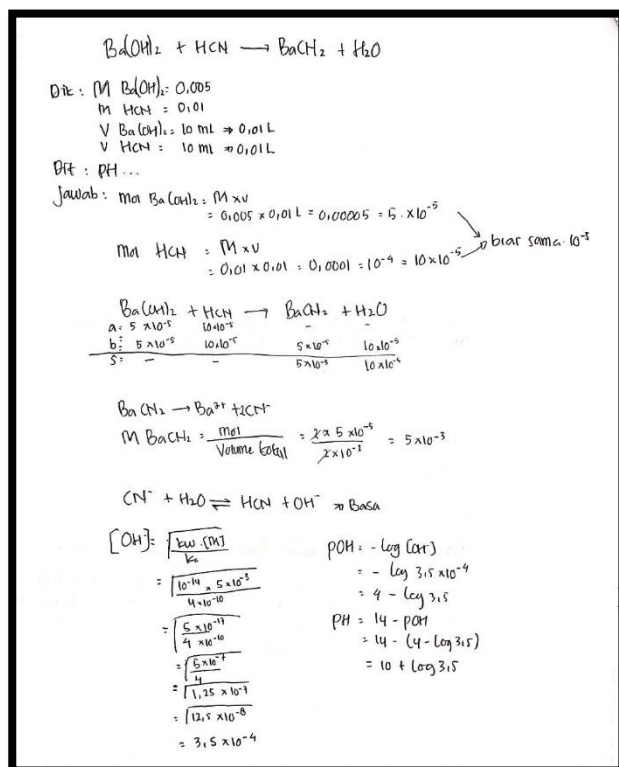 Ba(OH)2 + HCN → BaCH2 + H2O
Dik : M Ba(OH)2 = 0,005
M HCN = 0,01
V Ba(OH)2 = 10 mL ⇒ 0,01 L
V HCN = 10 mL ⇒ 0,01 L
Dit : PH ...
Jawab : mol Ba(OH)2 = M x V
= 0,005 x 0,01 L = 0,00005 = 5 . x 10⁻⁵
biar sama 10⁻⁵
mol HCN = M x V
= 0,01 x 0,01 = 0,0001 = 10⁻⁴ = 10 x 10⁻⁵
Ba(OH)2 + HCN → BaCH2 + H2O
a : 5 x 10⁻⁵ 10x10⁻⁵ - -
b : 5 x 10⁻⁵ 10x10⁻⁵ 5 x 10⁻⁵ 10x10⁻⁵
S : - - 5x10⁻⁵ 10 x 10⁻⁵
BaCN2 → Ba²⁺ + 2CN⁻
M BaCH2 = mol / Volume total = 2 x 5 x 10⁻⁵ / 2 x 10⁻² = 5 x 10⁻³
CN⁻ + H2O ⇌ HCN + OH⁻ ⇒ Basa
[OH] = √kw . [M] / ka
= √10⁻¹⁴ x 5 x 10⁻³ / 4 x 10⁻¹⁰
= √5 x 10⁻¹⁷ / 4 x 10⁻¹⁰
= √5 x 10⁻⁷ / 4
= √1,25 x 10⁻⁷
= √12,5 x 10⁻⁸
= 3,5 x 10⁻⁴
POH = - log [OH⁻]
= - log 3,5 x 10⁻⁴
= 4 - log 3,5
PH = 14 - POH
= 14 - (4 - log 3,5)
= 10 + log 3,5